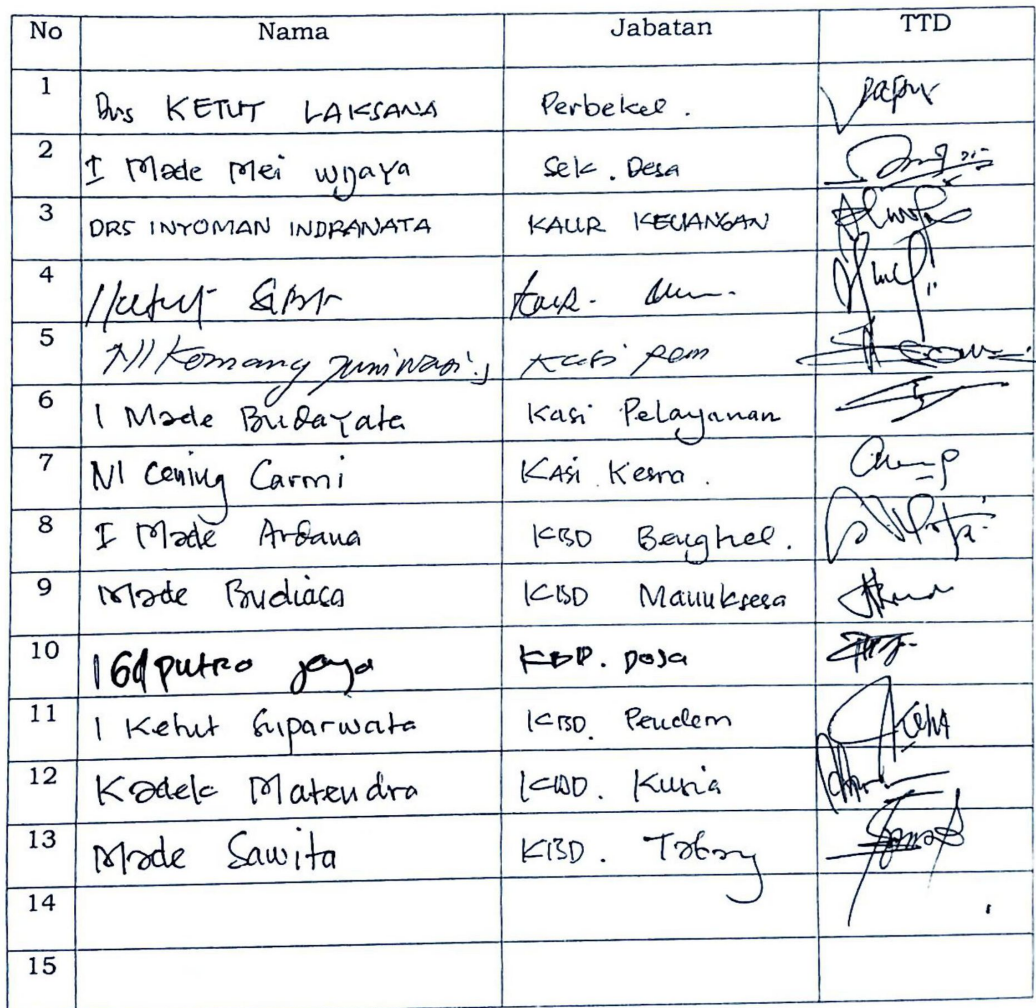 No Nama Jabatan TTD
1 Drs KETUT LAKSANA Perbekel.
2 I Made Mei Wijaya Sek. Desa
3 DRS INYOMAN INDRANATA KAUR KEUANGAN
4 I Ketut
5 NI Komang Kasi pem
6 I Made Budayata Kasi Pelayanan
7 NI Cening Carmi KASi Kesra.
8 I Made Ardana KBD Bengkel.
9 Made Budiasa KBD Manuksesa
10 I Gd putra jaya KBD. Desa
11 I Ketut Suparwata KBD. Pendem
12 Kadek Matendra KBD. Kusia
13 Made Sawita KBD.
14
15